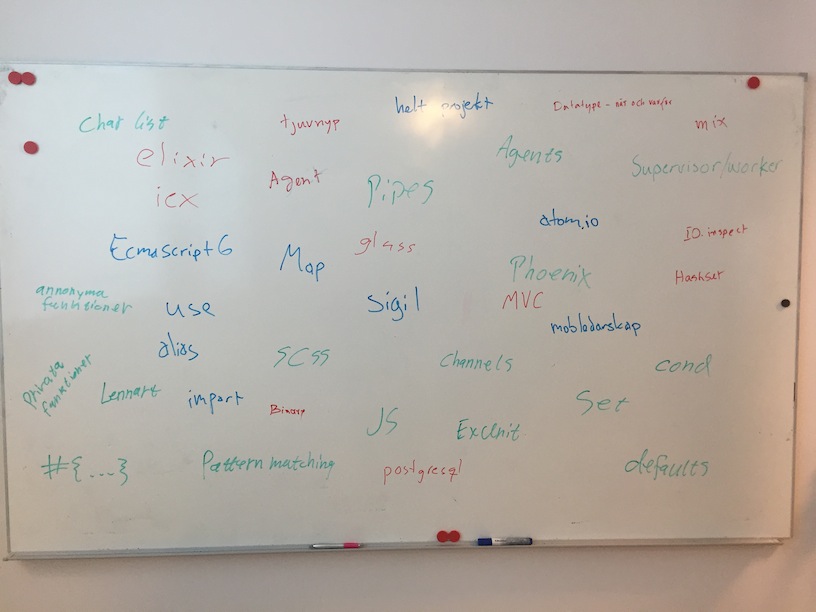 helt projekt
Char list
tjuvnyp
Datatype - när och var/är
mix
elixir
Agent
Pipes
Agents
Supervisor/worker
iex
atom.io
Ecmascript6
Map
glass
IO.inspect
Phoenix
Hashset
annonyma
funktioner
use
sigil
MVC
mobledarskap
alias
SCSS
Channels
cond
Privata
funktioner
Lennart
import
Binary
JS
ExUnit
Set
#{...}
Pattern matching
postgresql
defaults